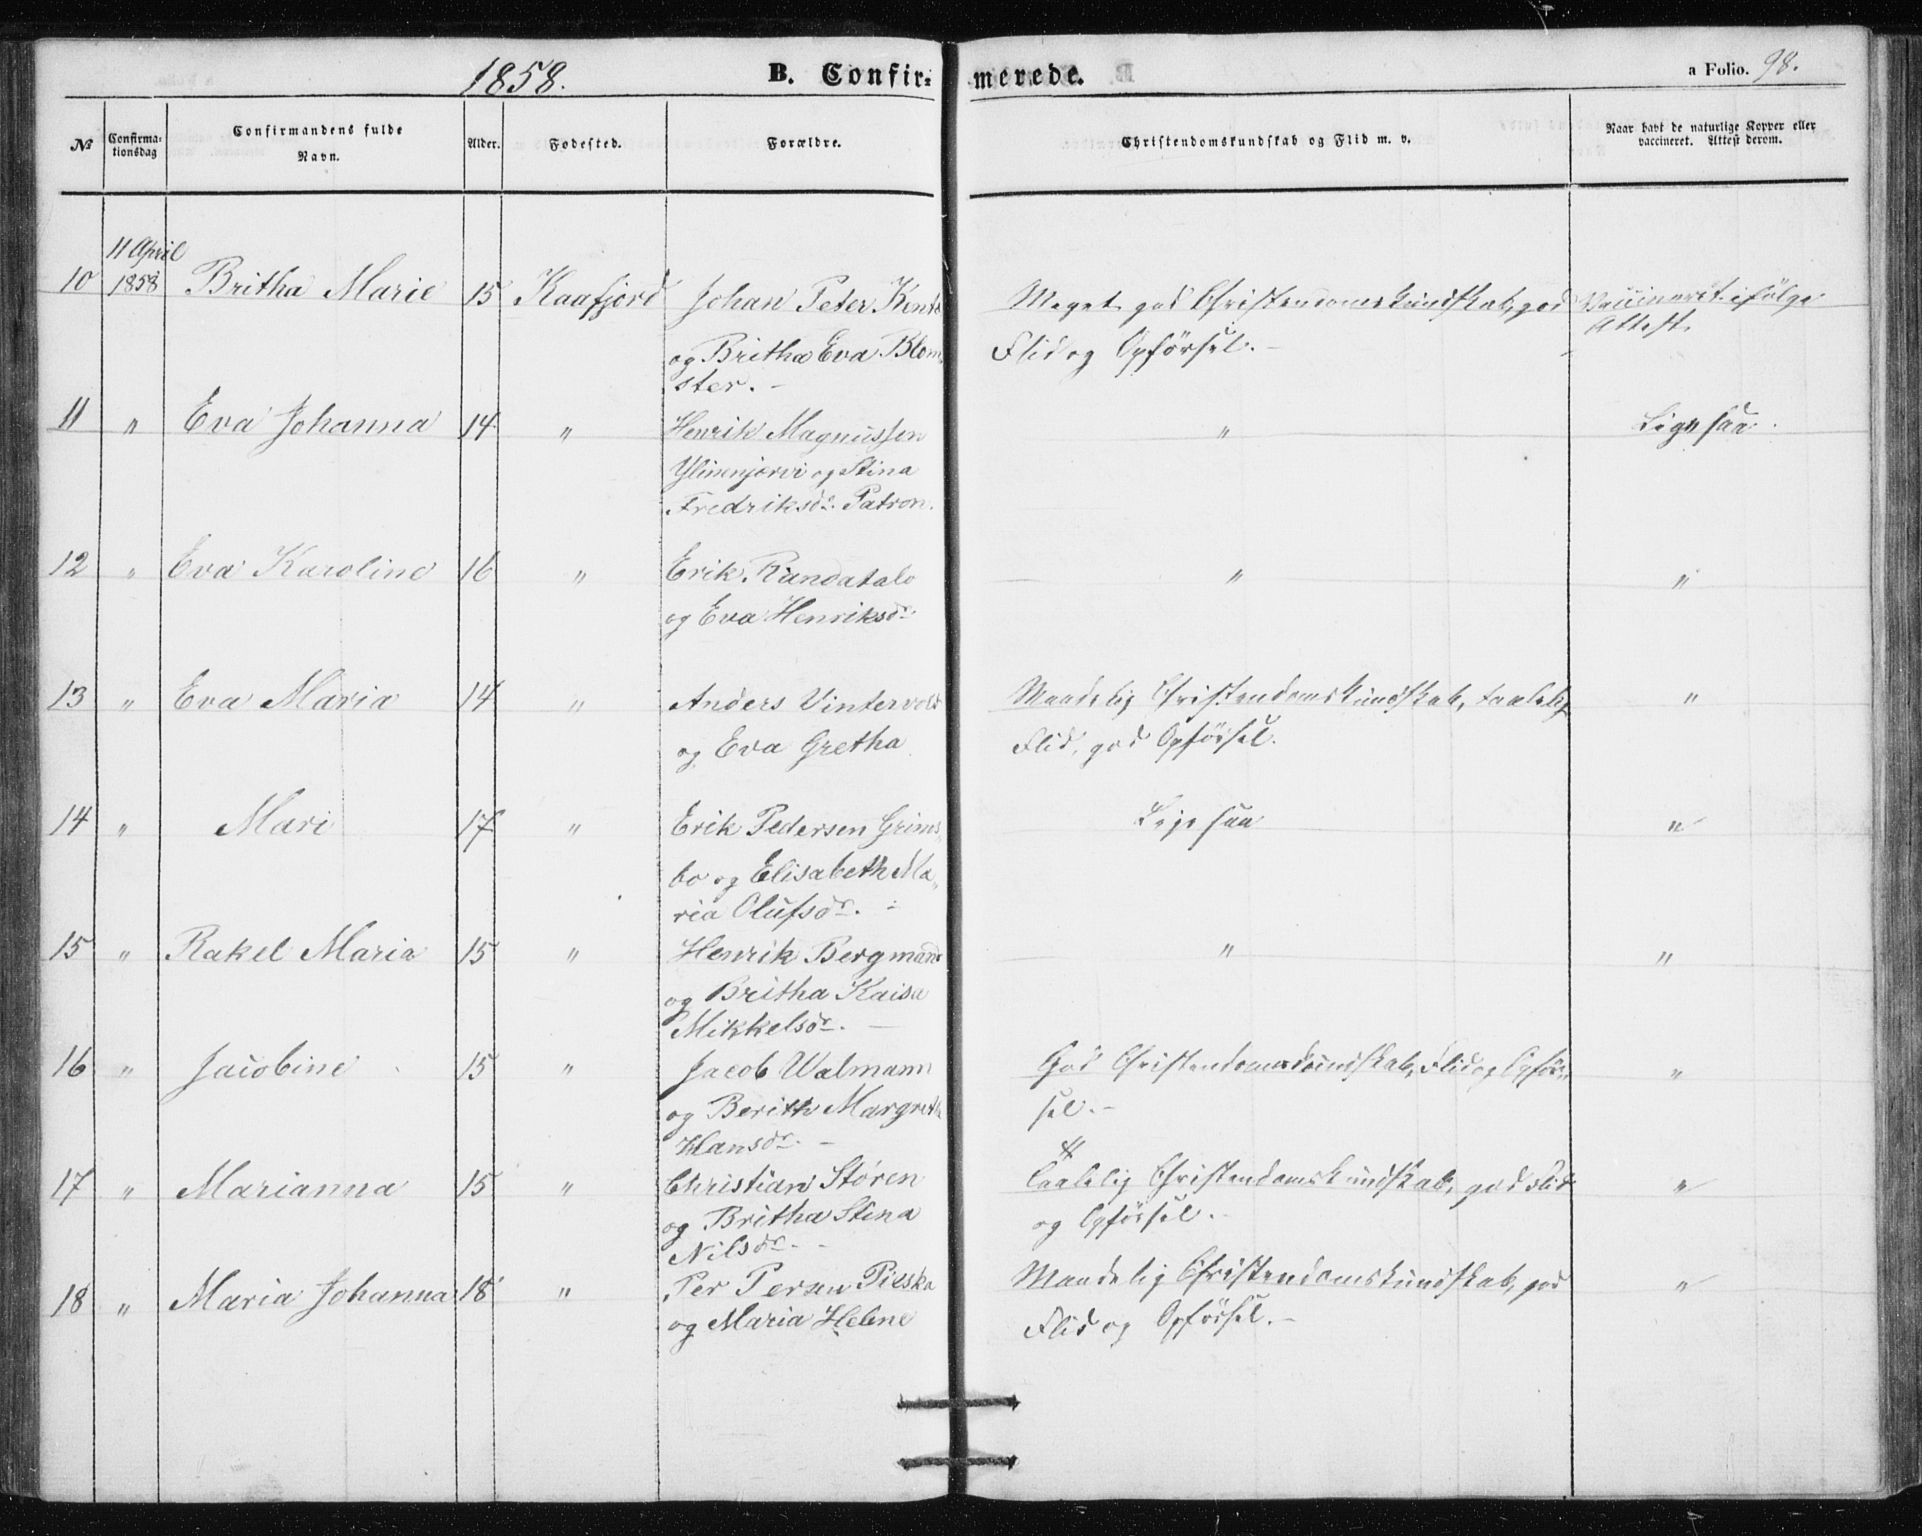 1858. B. Confirmerede. a Folio. 98.
№ Confirmationsdag Confirmandens fulde Navn. Alder. Fødested. Forældre. Christendomskundskab og Flid m. v. Naar havt de naturlige Kopper eller vaccineret. Attest derom.
10 11 April 1858 Britha Marie 15 Kaafjord Johan Peter Kents Meget god Christendomskundskab, god Vaccineret ifølge
og Britha Eva Blom- Flid og Opførsel.- Attest.
ster. -
11 " Eva Johanna 14 " Henrik Magnussen " Ligesaa.
Ylinenjærvi og Stina
Fredriksdr. Patron.
12 " Eva Karoline 16 " Erik Randatalo " "
og Eva Henriksdr.
13 " Eva Maria 14 " Anders Vintervold Maadelig Christendomskundskab, taalelig "
og Eva Gretha Flid, god Opførsel.
14 " Mari 17 " Erik Pedersen Grims- Ligesaa "
bo og Elisabeth Ma-
ria Olufsdr. -
15 " Rakel Maria 15 " Henrik Bergmand " "
og Britha Kaisa
Mikkelsdr. -
16 " Jacobine 15 " Jacob Walmann God Christendomskundskab, Flid og Opfør- "
og Berith Margreth sel.-
Hansdr. -
17 " Marianna 15 " Christian Støren Taalelig Christendomskundskab, god Flid "
og Britha Stina og Opførsel.-
Nilsdr. -
18 " Maria Johanna 18 " Per Persen Pieska Maadelig Christendomskundskab, god "
og Maria Helene Flid og Opførsel.-